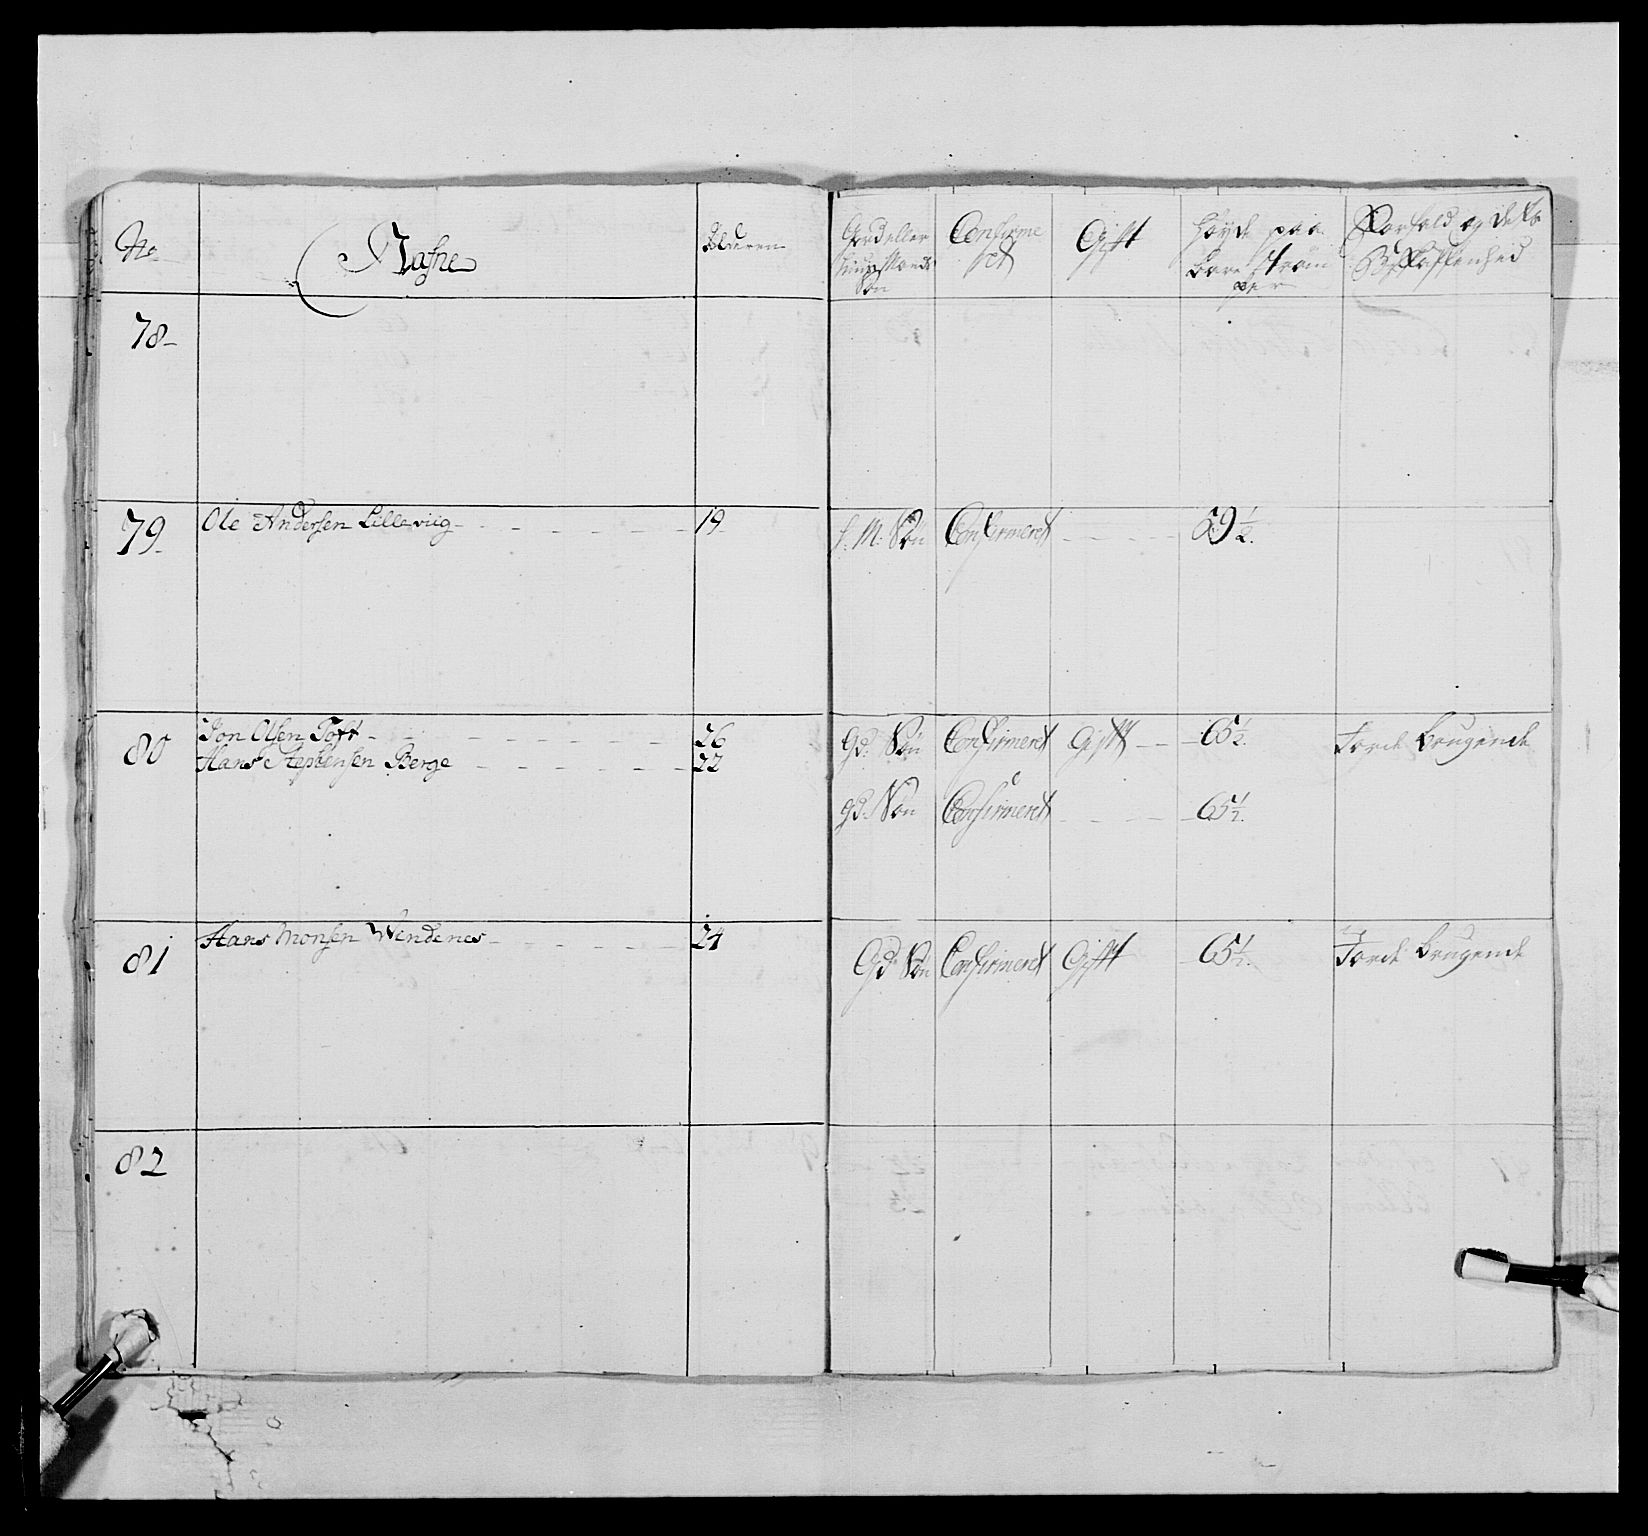 No. Nafne Alderen Gaard eller Huusmands Søn Confirmeret Gift Høyde paa bare Strømper Forhold og dets Beskaffenhed
78
79 Ole Andersen Lilleviig 19 H: M: Søn Confirmeret 69 1/2.
80 Jon Olsen Toft 26 Gd: Søn Confirmeret Gift 65 1/2. Jorde brugende
Hans Stephensen Berge 22 gd: Søn Confirmeret 65 1/2.
81 Hans Monsen Wendenes 24 Gd: Søn Confirmeret Gift 65 1/2. Jorde brugende
82